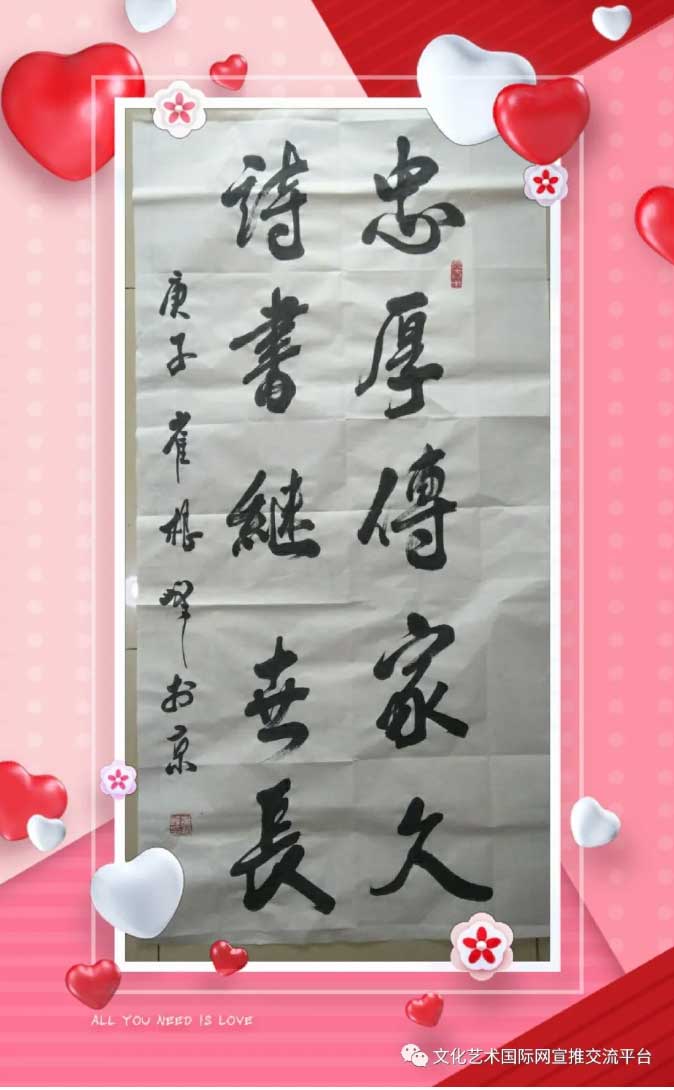 忠厚傳家久
詩書継世長
庚子崔根峰於京
ALL YOU NEED IS LOVE
文化艺术国际网宣推交流平台